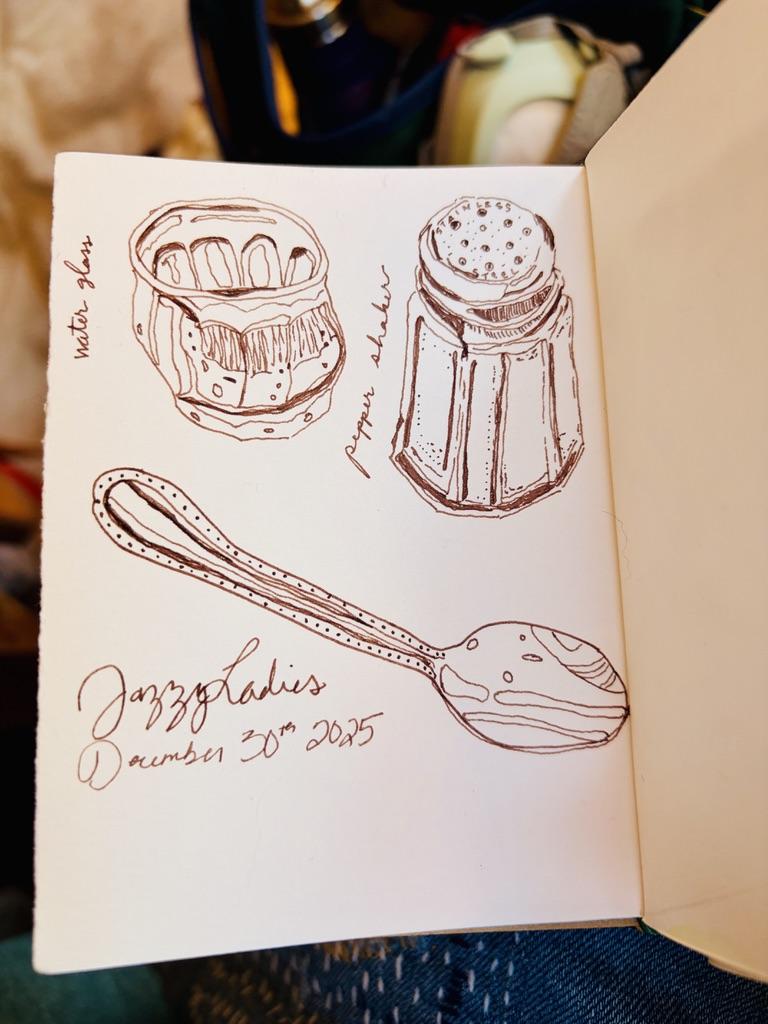 STAINLESS
water glass
pepper shaker
Jazzy Ladies
December 30th 2025